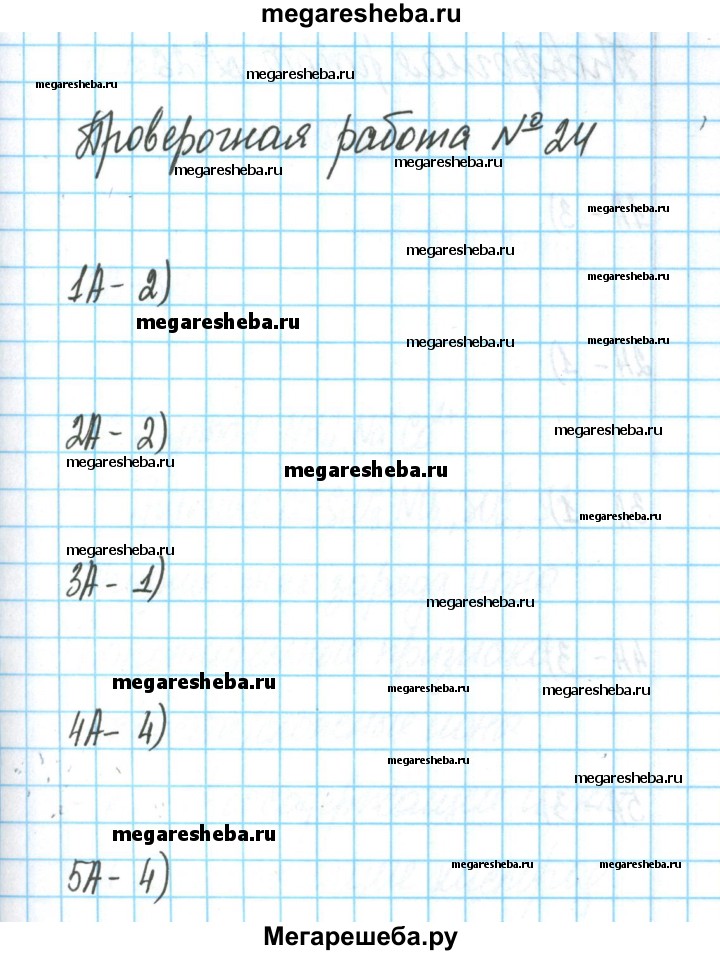 megaresheba.ru
megaresheba.ru
megaresheba.ru
Проверочная работа № 24
megaresheba.ru
megaresheba.ru
megaresheba.ru
megaresheba.ru
megaresheba.ru
1А - 2)
megaresheba.ru
megaresheba.ru
megaresheba.ru
2А - 2)
megaresheba.ru
megaresheba.ru
megaresheba.ru
megaresheba.ru
megaresheba.ru
3А - 1)
megaresheba.ru
megaresheba.ru
megaresheba.ru
megaresheba.ru
4А - 4)
megaresheba.ru
megaresheba.ru
megaresheba.ru
5А - 4)
megaresheba.ru
megaresheba.ru
Мегарешеба.ру